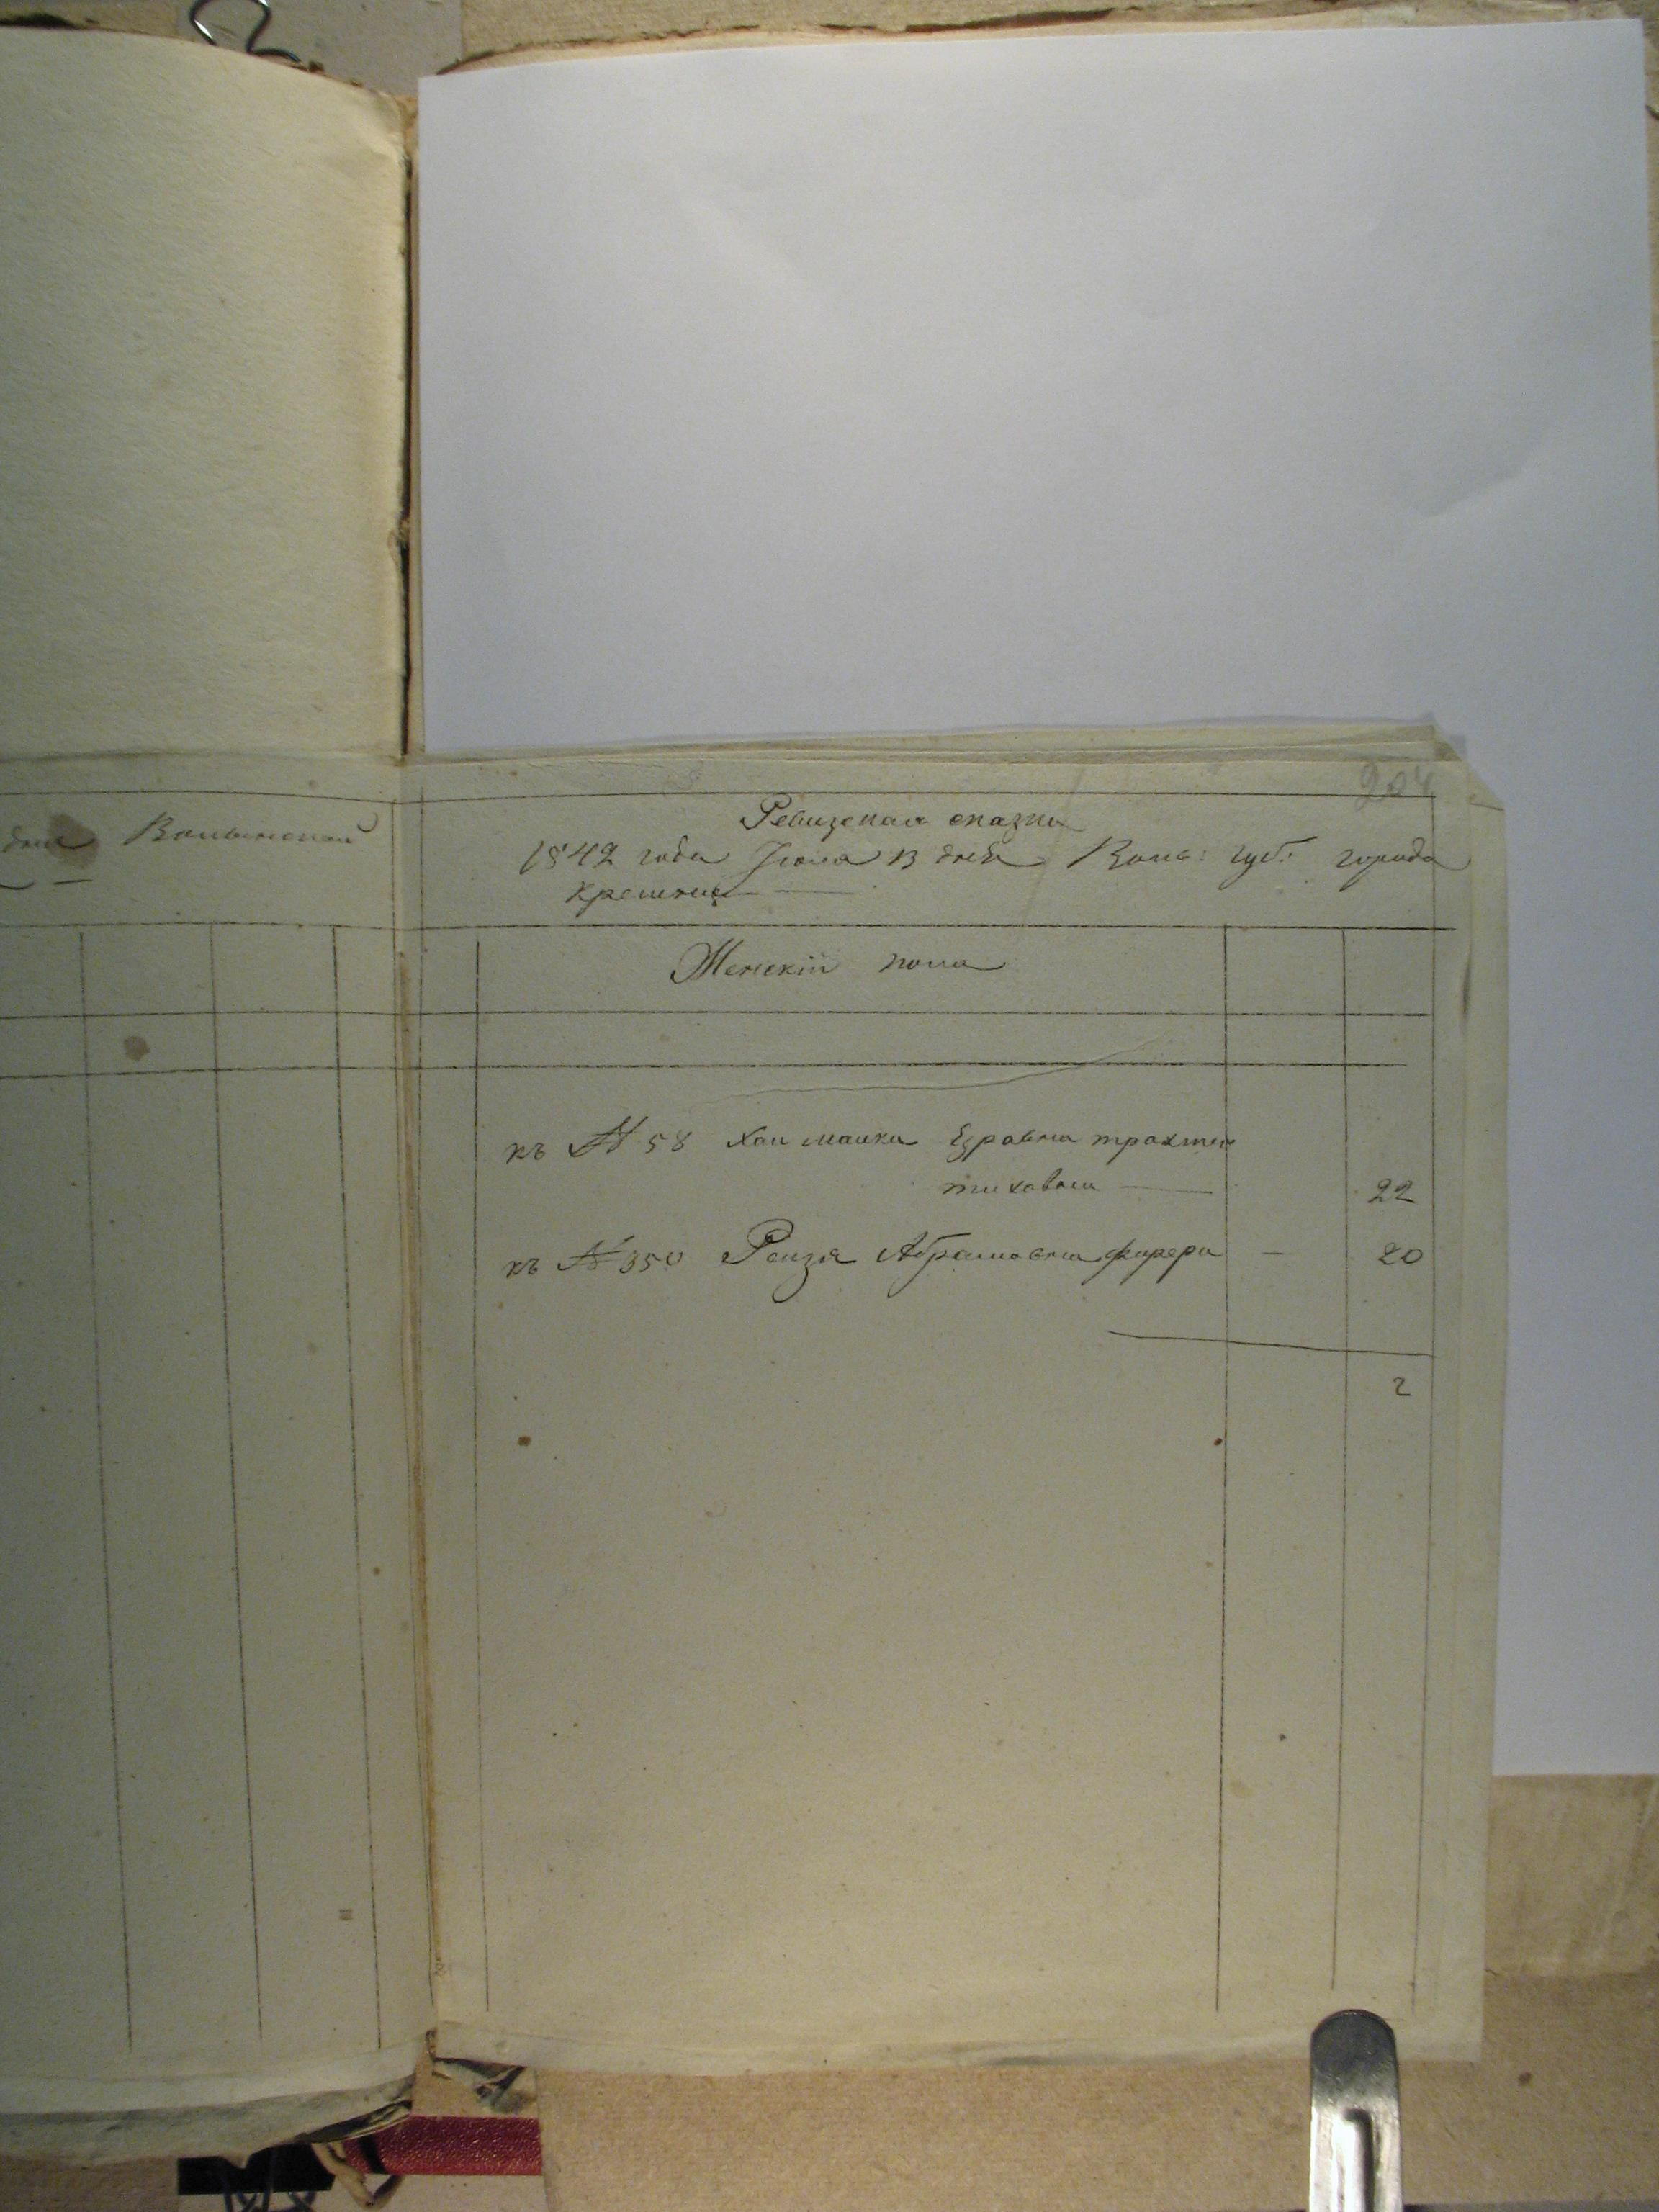 дня Волынской
204
Ревизская сказка
1842 года Июля 13 дня Волы: губ: города
Кременца
Женскій пола
къ № 58 Хаи Малки Езровна трахтен
22
къ № 350 Рейзя Абрамовна фирера — 20
2